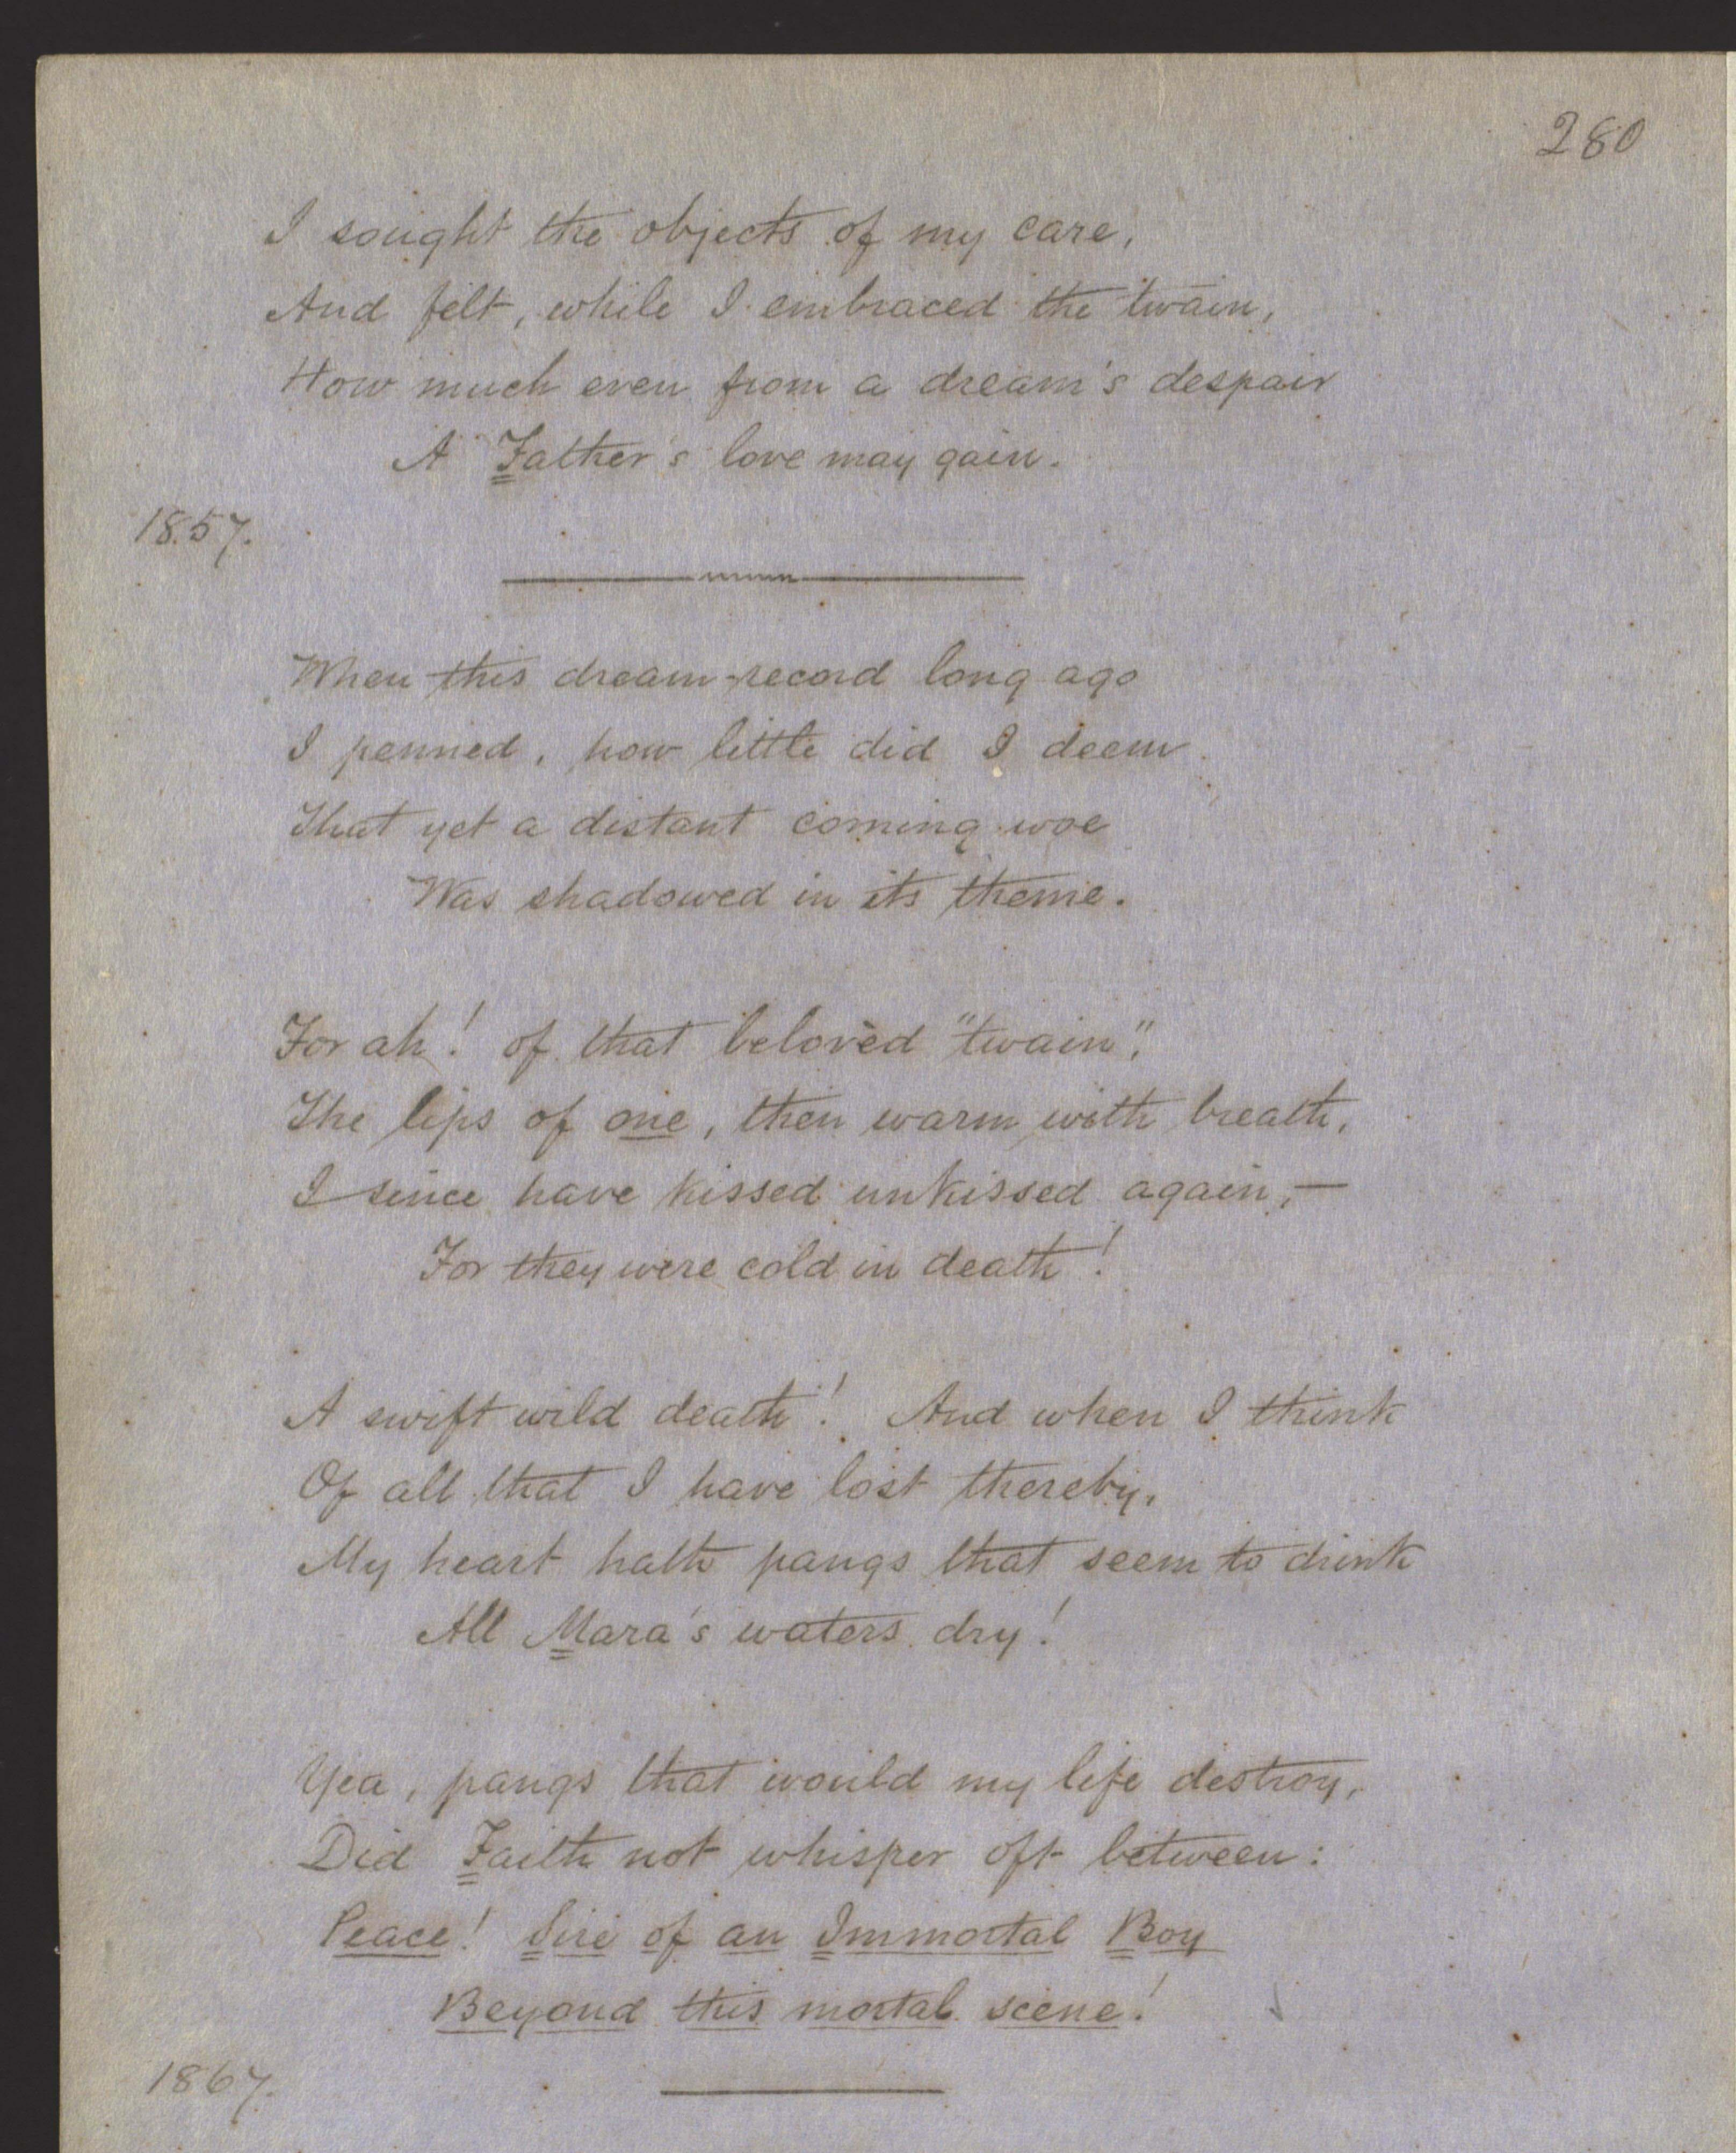 280
I sought the objects of my care,
And felt, while I embraced the twain,
How much even from a dream's despair
A Father's love may gain.
1857.
When this dream-record long ago
I penned, how little did I deem
That yet a distant coming woe
Was shadowed in its theme.
For ah! of that belovèd "twain",
The lips of one, then warm with breath,
I since have kissed unkissed again,—
For they were cold in death!
A swift wild death! And when I think
Of all that I have lost thereby,
My heart hath pangs that seem to drink
All Mara's waters dry!
Yea, pangs that would my life destroy,
Did Faith not whisper oft between:
Peace! Sire of an Immortal Boy
Beyond this mortal scene!
1867.